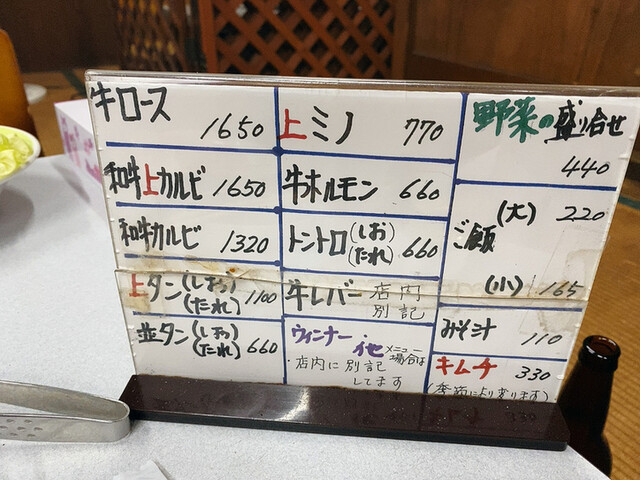 牛ロース 1650
和牛上カルビ 1650
和牛カルビ 1320
上タン(しお)(たれ) 1100
並タン(しお)(たれ) 660
上ミノ 770
牛ホルモン 660
トントロ(しお)(たれ) 660
牛レバー 店内別記
ウィンナー・他 メニュー場合は
・店内に別記
してます
野菜の盛り合せ
440
(大) 220
ご飯
(小) 165
みそ汁 110
キムチ 330
(季節により変ります)
330